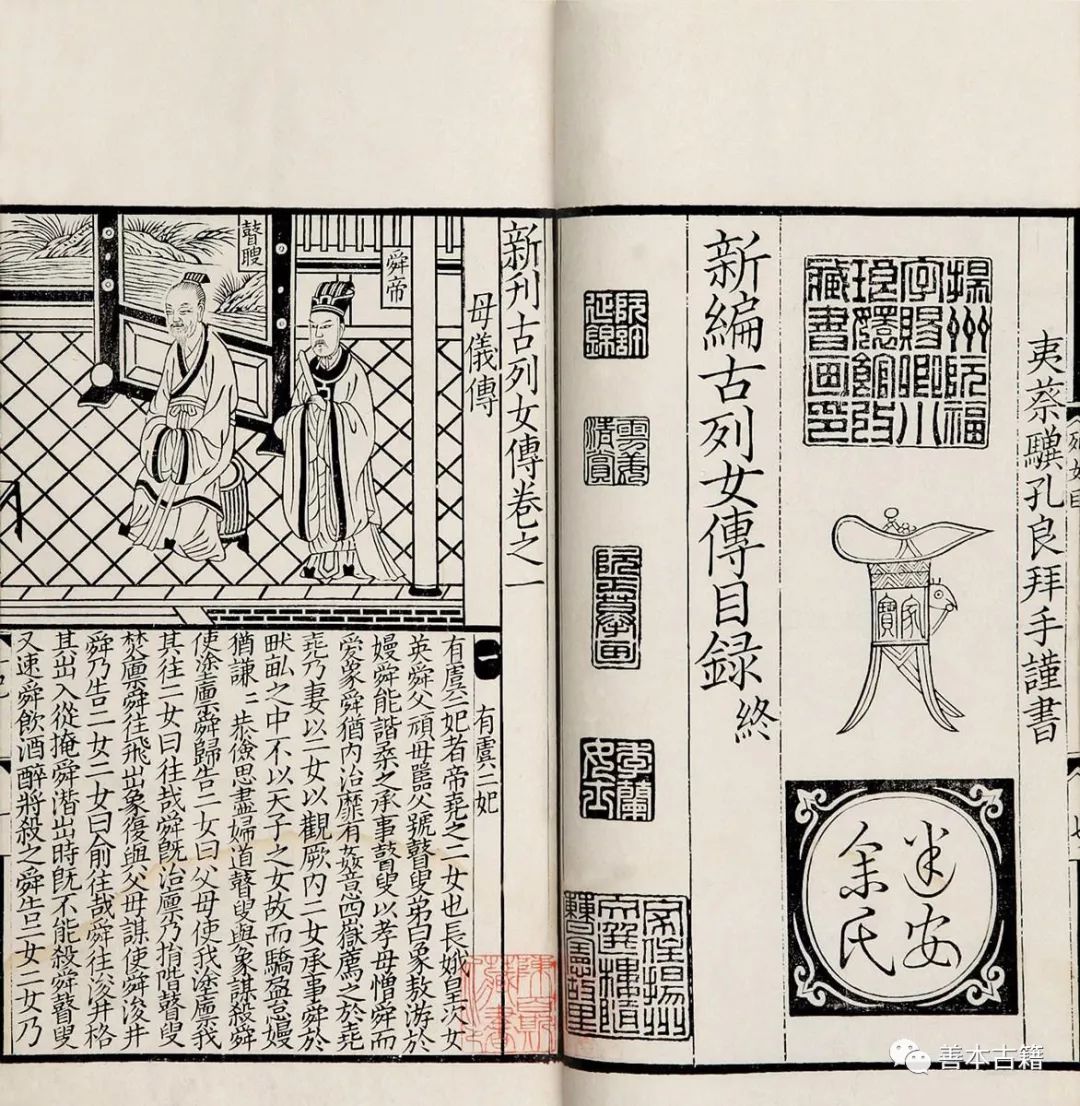 夷蔡驥孔良拜手謹書
揚州阮福
字賜卿小
琅嬛館
藏書畫印
家寶
建安
余氏
新編古列女傳目録終
清賞
家住揚州
文選樓隋
曹憲故里
新刊古列女傳卷之一
母儀傳
舜帝
瞽瞍
一
有虞二妃
有虞二妃者帝堯之二女也長娥皇次女
英舜父頑母嚚父號瞽叟弟曰象敖游於
嫚舜能諧柔之承事瞽叟以孝母憎舜而
愛象舜猶内治靡有姦意四嶽薦之於堯
堯乃妻以二女以觀厥内二女承事舜於
畎畝之中不以天子之女故而驕盈怠嫚
猶謙〻恭儉思盡婦道瞽叟與象謀殺舜
使塗廩舜歸告二女曰父母使我塗廩我
其往二女曰往哉舜既治廩乃捐階瞽叟
焚廩舜往飛出象復與父母謀使舜浚井
舜乃告二女二女曰俞往哉舜往浚井格
其出入從掩舜潛出時既不能殺舜瞽叟
又速舜飲酒醉將殺之舜告二女二女乃
善本古籍